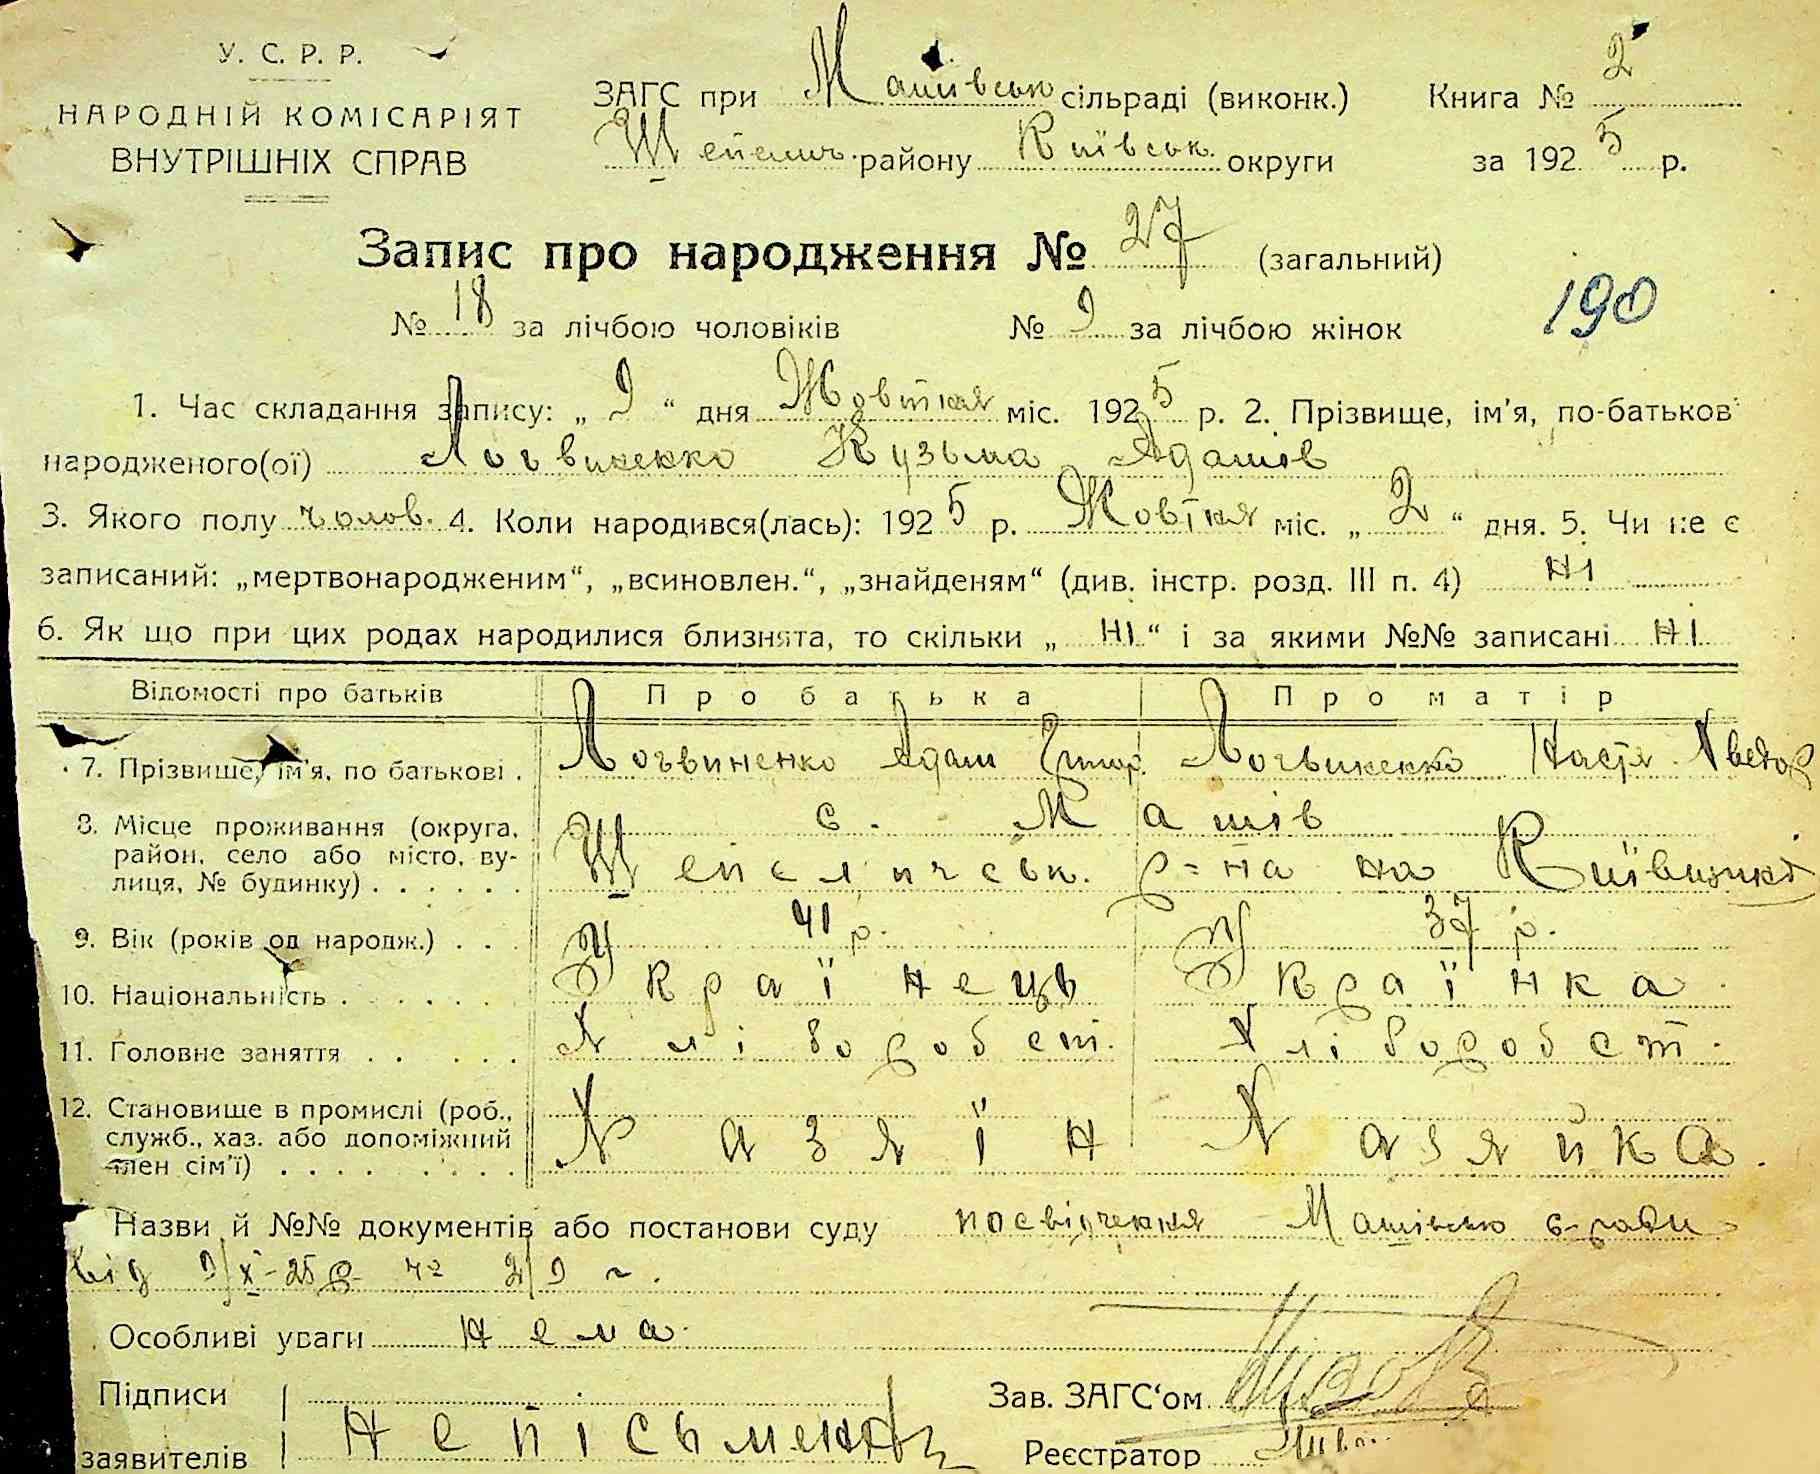 У. С. Р. Р.
НАРОДНІЙ КОМІСАРІЯТ
ВНУТРІШНІХ СПРАВ
ЗАГС при Машівськ сільраді (виконк.) Книга № 2
Шепелич. району Київськ. округи за 1925 р.
Запис про народження № 27 (загальний)
№ 18 за лічбою чоловіків № 9 за лічбою жінок
190
1. Час складання запису: „ 9 “ дня Жовтня міс. 1925 р. 2. Прізвище, ім'я, по-батьков
народженого(ої) Логвиненко Кузьма Адамів
3. Якого полу чолов. 4. Коли народився(лась): 1925 р. Жовтня міс. „ 2 “ дня. 5. Чи не є
записаний: „мертвонародженим“, „всиновлен.“, „знайденям“ (див. інстр. розд. III п. 4) ні
6. Як що при цих родах народилися близнята, то скільки „ ні “ і за якими №№ записані ні
Відомості про батьків Про батька Про матір
7. Прізвище, ім'я, по батькові . Логвиненко Адам Григор. Логвиненко Настя Хведор
8. Місце проживання (округа, район, село або місто, вулиця, № будинку) . . . . . . с. Машів
Шепеличськ. р=на на Київщині
9. Вік (років од народж.) . . . 41 р. 37 р.
10. Національність . . . . . . Українець Українка
11. Головне заняття . . . . . . Хліборобст. Хліборобст.
12. Становище в промислі (роб., служб., хаз. або допоміжний член сім'ї) . . . . . . . . Хазяїн Хазяйка.
Назви й №№ документів або постанови суду посвідчення Машівсько с-ради
від 9/X-25 р.
Особливі уваги Нема.
Підписи
заявителів Неписьмен
Зав. ЗАГС‘ом
Реєстратор